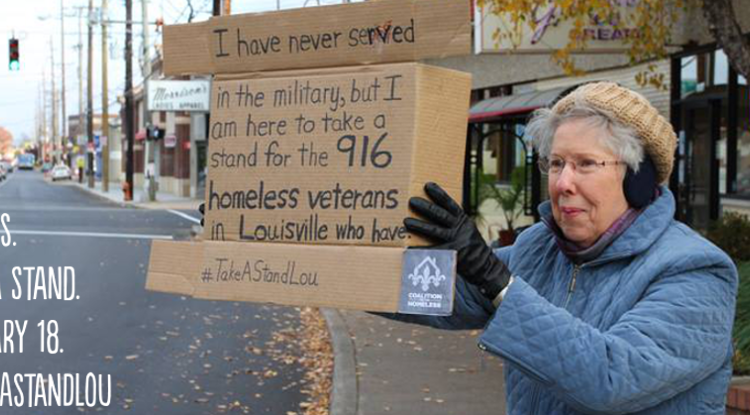 I have never served
in the military, but I
am here to take a
stand for the 916
homeless veterans
in Louisville who have.
#TakeAStandLou
COALITION
HOMELESS
Morrison's
CREAM
S.
A STAND.
ARY 18.
ASTANDLOU